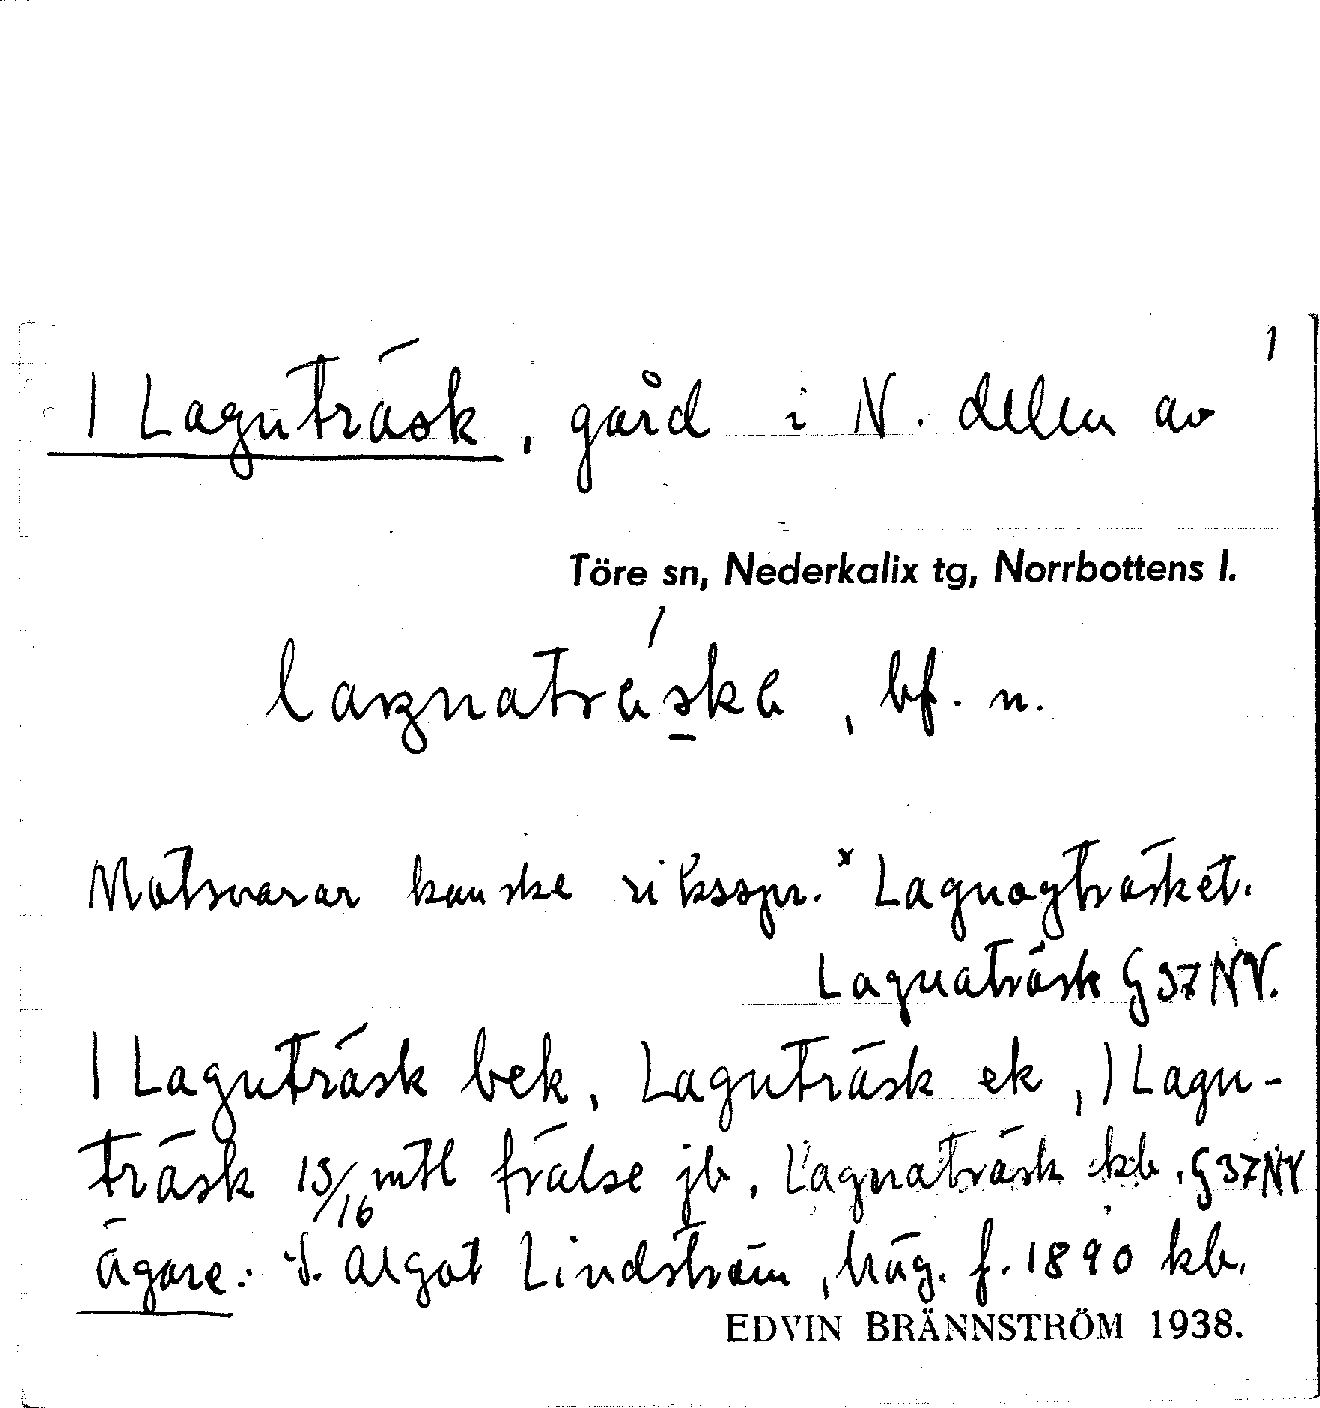 1
1 Lagnträsk, gård i N. delen av
Töre sn, Nederkalix tg, Norrbottens l.
lagnatráska, bf. n.
Motsvarar kanske riksspr. *Lagnogträsket.
Lagnaträsk G 37 NV.
1 Lagnträsk bek, Lagnträsk ek, 1 Lagn-
träsk 13/16 mtl frälse jb, Lagnaträsk kb. G 37 NV
ägare: J. Algot Lindström, häg. f. 1890 kb.
EDVIN BRÄNNSTRÖM 1938.